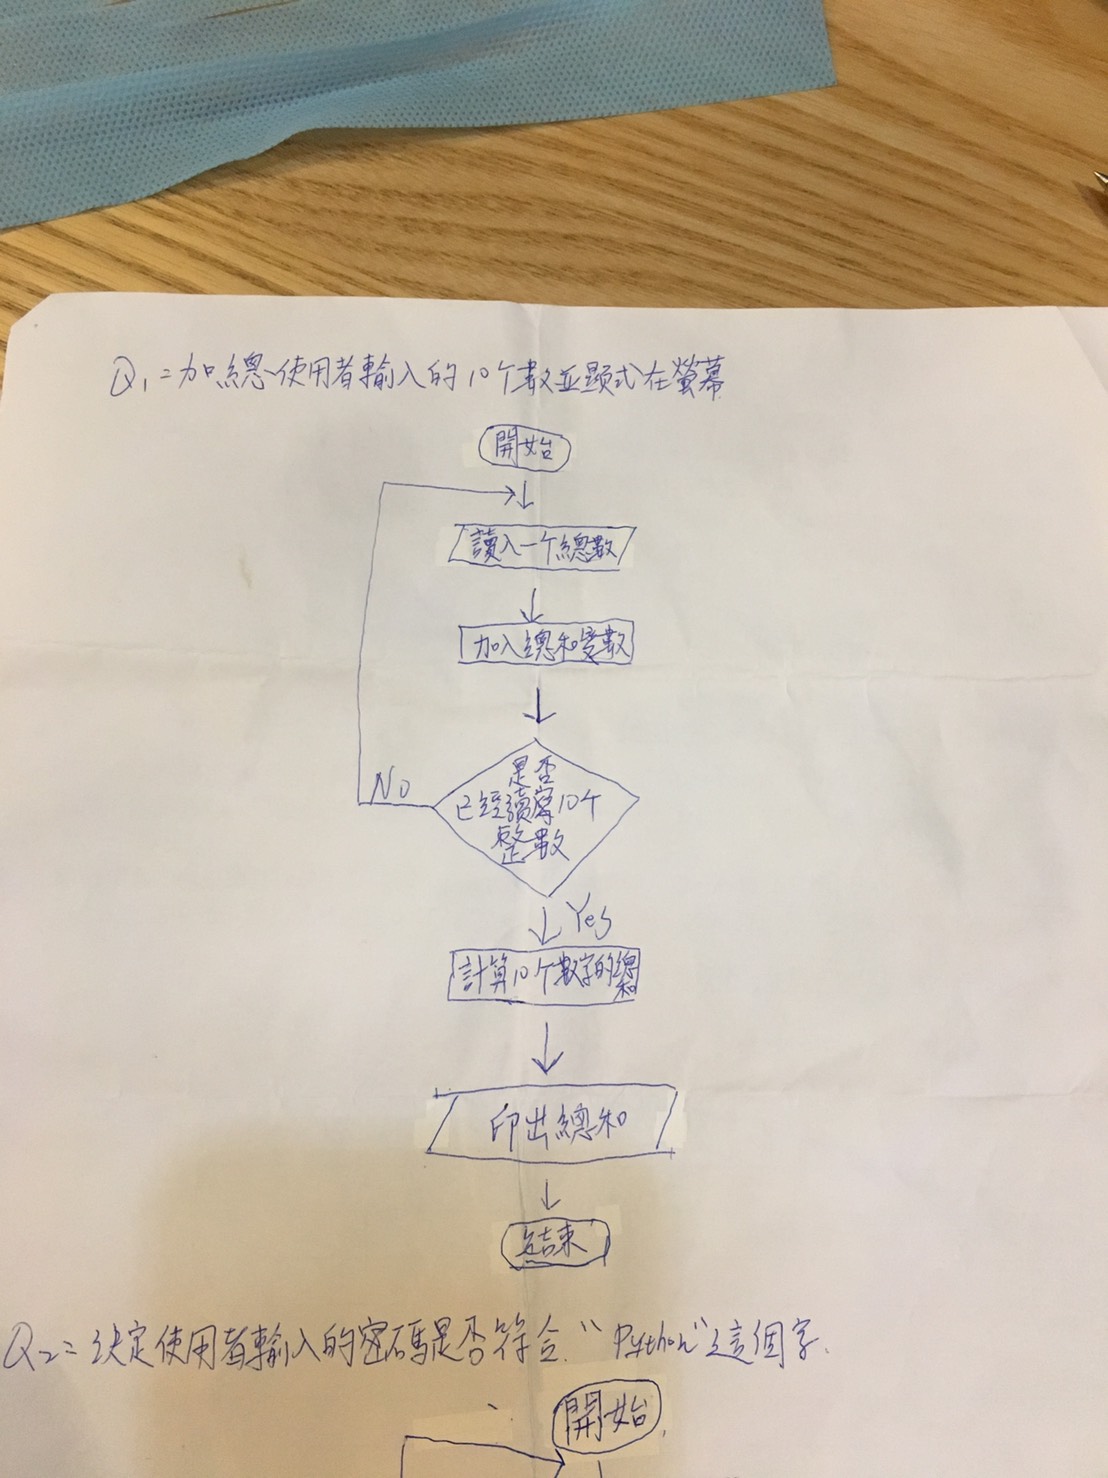 Q1=加總使用者輸入的10个數並顯式在螢幕
開始
讀入一个總數
加入總和變數
No
是否
已經讀完10个
整數
Yes
計算10个數字的總和
印出總和
結束
Q2=決定使用者輸入的密碼是否符合"Python"這個字.
開始